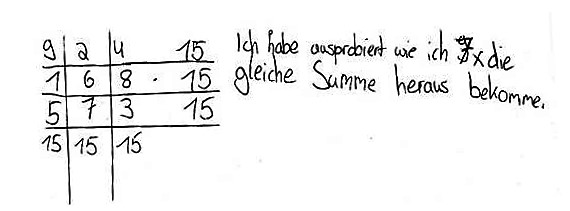 9 2 4 15
1 6 8 . 15
5 7 3 15
15 15 15
Ich habe ausprobiert wie ich x die
gleiche Summe heraus bekomme.